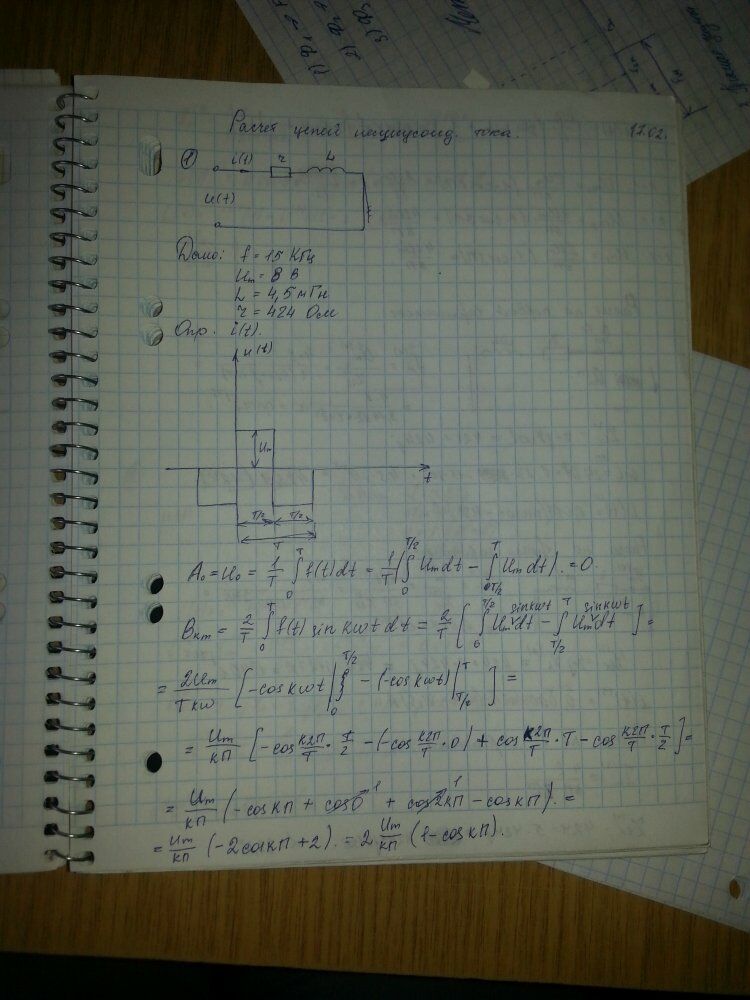 Расчет цепей несинусоид. тока. 17.02.
① i(t) r L
u(t)
Дано: f = 15 КГц
Um = 8 В
L = 4,5 мГн
r = 424 Ом
Опр. i(t).
u(t)
Um
t
T/2 T/2
T
A₀ = U₀ = 1/T ∫₀ᵀ f(t)dt = 1/T (∫₀^(T/2) Um dt − ∫_(T/2)^T Um dt). = 0.
Bкm = 2/T ∫₀ᵀ f(t) sin кωt dt = 2/T [∫₀^(T/2) Um sinкωt dt − ∫_(T/2)^T Um sinкωt dt] =
= 2Um/Tкω [−cosкωt |₀^(T/2) − (−cosкωt) |_(T/2)^T] =
= Um/кП [−cos к2П/T · T/2 − (−cos к2П/T · 0) + cos к2П/T · T − cos к2П/T · T/2] =
= Um/кП (−cosкП + cos0 ¹ + cos2кП ¹ − cosкП). =
= Um/кП (−2cosкП + 2). = 2 Um/кП (1−cosкП).